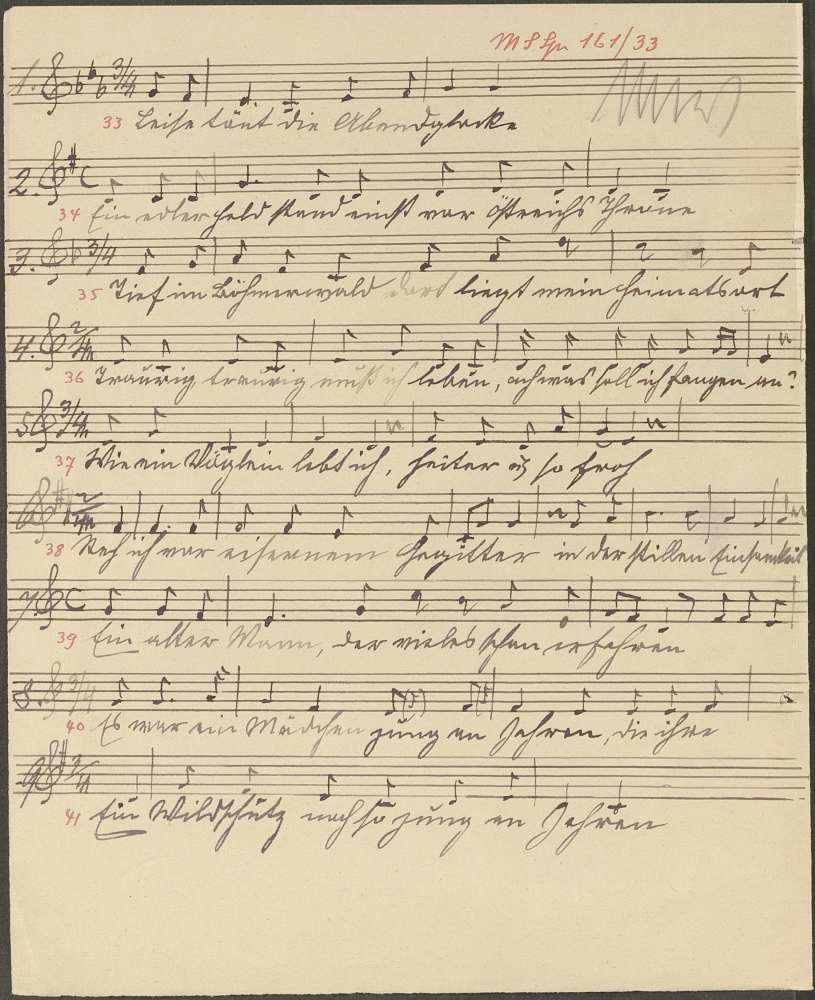 161/33
1. 3/4
33 Leise tönt die Abendglocke
2. C
34 Ein edler Held stand einst vor Östreichs Throne
3. 3/4
35 Tief im Böhmerwald dort liegt mein Heimatsort
4. 2/4
36 Traurig, traurig muß ich leben, ach was soll ich fangen an?
5 3/4
37 Wie ein Vöglein lebt ich, heiter so froh
6 2/4
38 Steh ich vor eisernem Gegitter in der stillen Einsamkeit
7. C
39 Ein alter Mann, der vieles schon erfahren
8. 3/4
40 Es war ein Mädchen jung an Jahren, die ihre
9 3/4
41 Ein Wildschütz noch so jung an Jahren